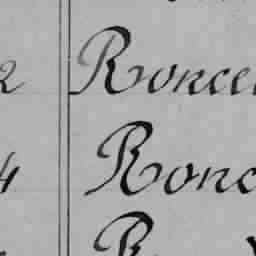 2 Roncen
4 Ronc
R